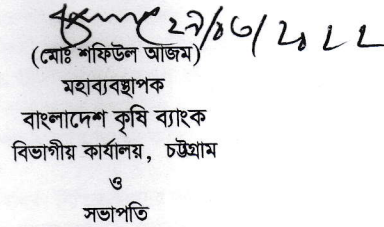 (মোঃ শফিউল আজম)
মহাব্যবস্থাপক
বাংলাদেশ কৃষি ব্যাংক
বিভাগীয় কার্যালয়, চট্টগ্রাম
ও
সভাপতি